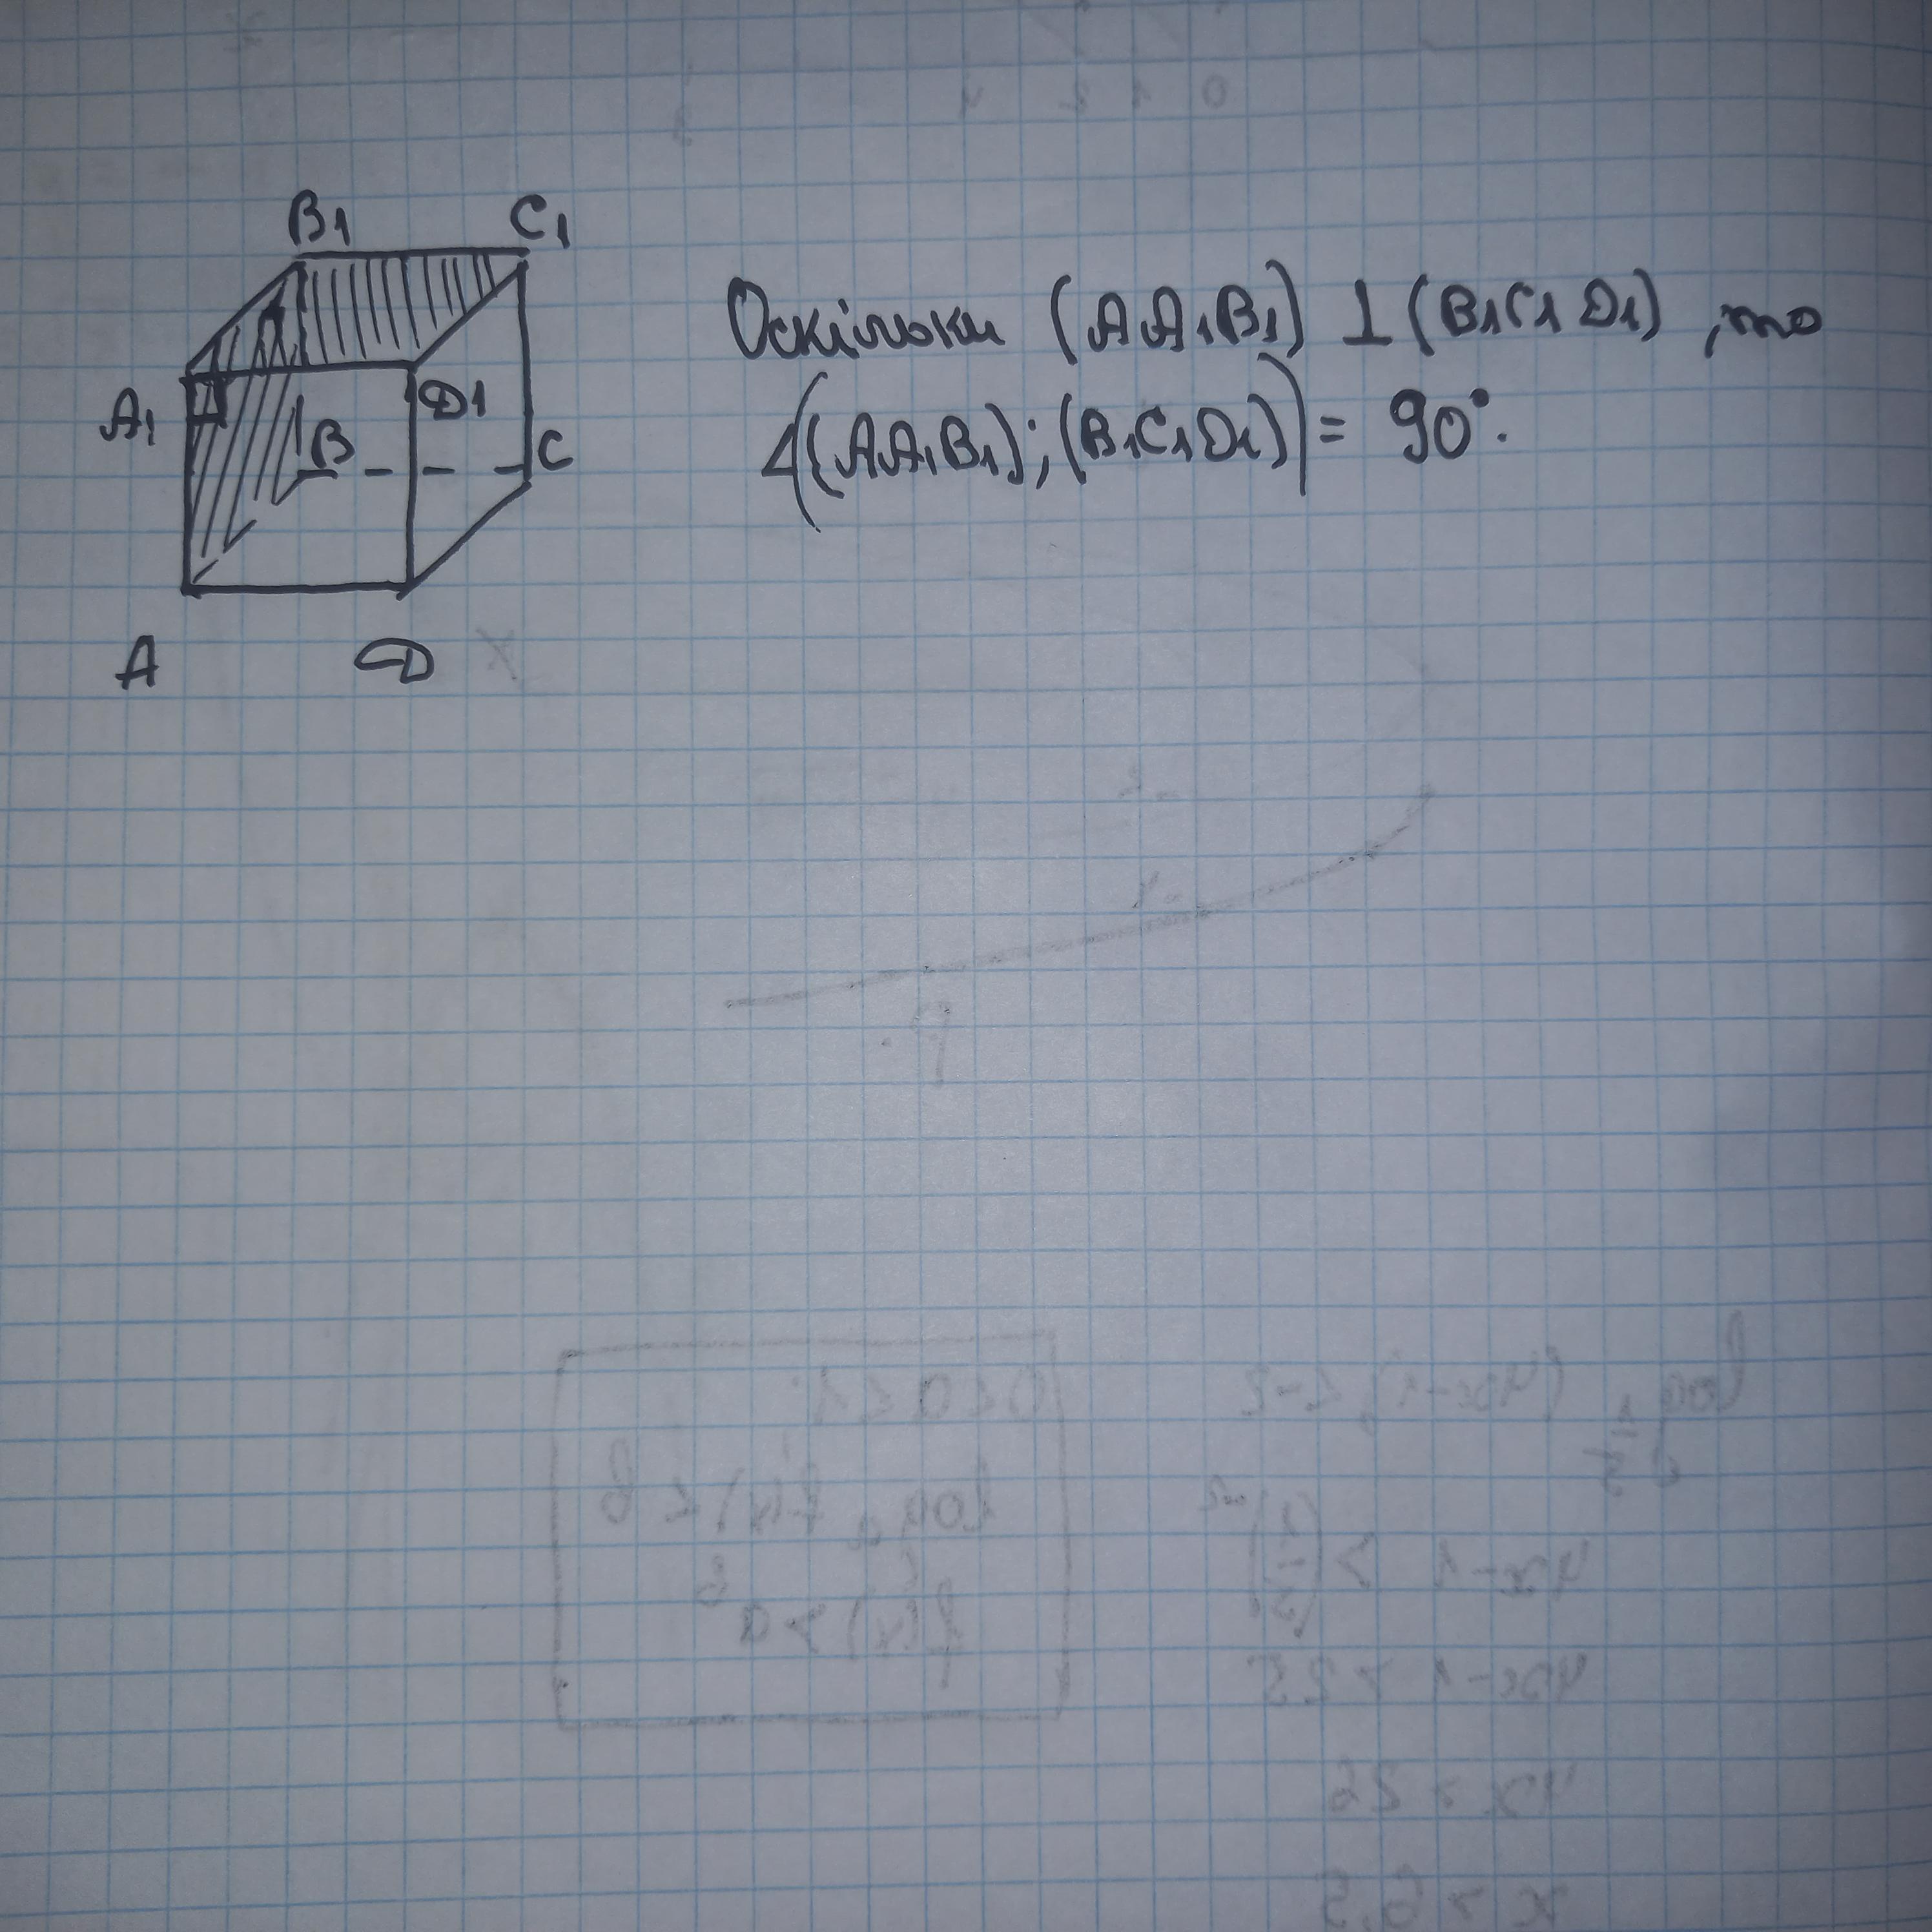 B1 C1
A1 D1
B C
A D
Оскільки (AA1B1) ⊥ (B1C1D1), то
∠((AA1B1); (B1C1D1)) = 90°.